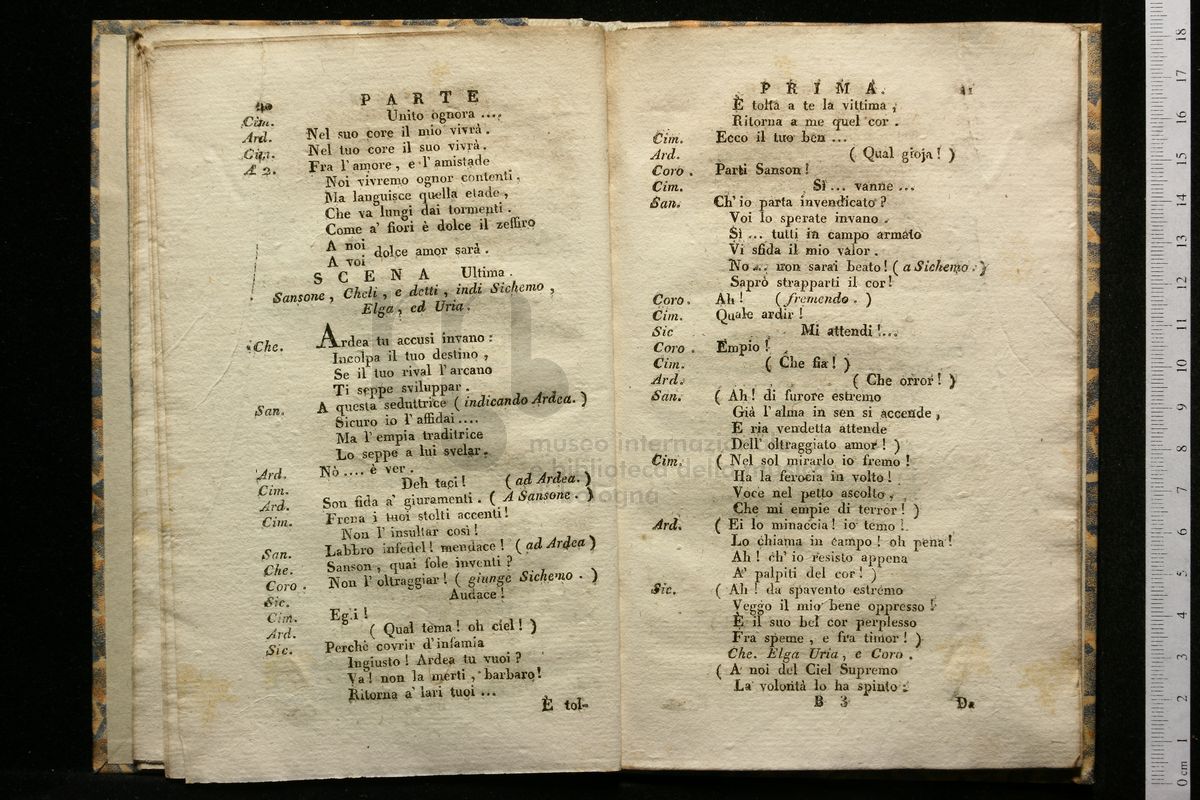 20 PARTE
Cim. Unito ognora ....
Ard. Nel suo core il mio vivrà.
Cim. Nel tuo core il suo vivrà.
A 2. Fra l'amore, e l'amistade
Noi vivremo ognor contenti,
Ma languisce quella etade,
Che va' lungi dai tormenti.
Come a' fiori è dolce il zeffiro
A noi
A voi dolce amor sarà.
SCENA Ultima.
Sansone, Cheli, e detti, indi Sichemo,
Elga, ed Uria.
Che. Ardea tu accusi invano:
Incolpa il tuo destino,
Se il tuo rival l'arcano
Ti seppe sviluppar.
San. A questa seduttrice (indicando Ardea.)
Sicuro io l'affidai....
Ma l'empia traditrice
Lo seppe a lui svelar.
Ard. Nò .... è ver.
Cim. Deh taci! (ad Ardea.)
Ard. Son fida a' giuramenti. (A Sansone.)
Cim. Frena i tuoi stolti accenti!
Non l'insultar così!
San. Labbro infedel! mendace! (ad Ardea)
Che. Sanson, quai fole inventi?
Coro. Non l'oltraggiar! (giunge Sichemo.)
Sic. Audace!
Cim. Egli!
Ard. (Qual tema! oh ciel!)
Sic. Perchè covrir d'infamia
Ingiusto! Ardea tu vuoi?
Va! non la merti, barbaro!
Ritorna a' lari tuoi ...
È tol-
PRIMA. 21
È tolta a te la vittima,
Ritorna a me quel cor.
Cim. Ecco il tuo ben ...
Ard. (Qual gioja!)
Coro. Parti Sanson!
Cim. Sì ... vanne ...
San. Ch'io parta invendicato?
Voi lo sperate invano.
Sì ... tutti in campo armato
Vi sfida il mio valor.
No ... non sarai beato! (a Sichemo.)
Saprò strapparti il cor!
Coro. Ah! (fremendo.)
Cim. Quale ardir!
Sic Mi attendi!...
Coro. Empio!
Cim. (Che fia!)
Ard. (Che orror!)
San. (Ah! di furore estremo
Già l'alma in sen si accende,
E ria vendetta attende
Dell'oltraggiato amor!)
Cim. (Nel sol mirarlo io fremo!
Ha la ferocia in volto!
Voce nel petto ascolto,
Che mi empie di terror!)
Ard. (Ei lo minaccia! io temo!
Lo chiama in campo! oh pena!
Ah! ch'io resisto appena
A' palpiti del cor!)
Sic. (Ah! da spavento estremo
Veggo il mio bene oppresso!
È il suo bel cor perplesso
Fra speme, e fra timor!)
Che. Elga Uria, e Coro.
(A noi del Ciel Supremo
La volontà lo ha spinto:
B 3 Da
museo internazionale
e biblioteca della musica
bologna